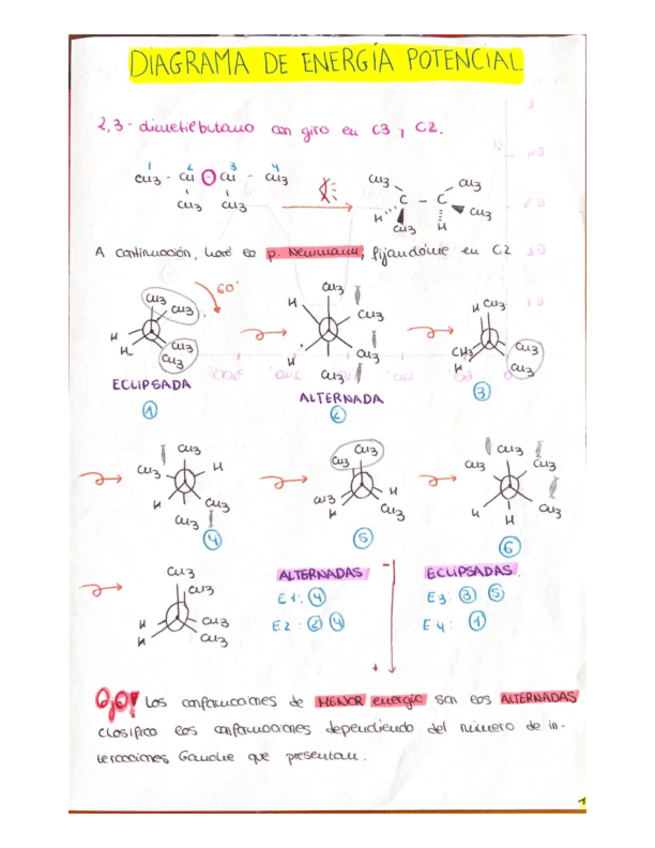 DIAGRAMA DE ENERGÍA POTENCIAL
2,3 - dimetilbutano con giro en C3 y C2.
1 2 3 4
CH3 - CH - CH - CH3
CH3 CH3
CH3 CH3
C - C
H CH3
CH3 H
A continuación, haré la p. Newmann, fijándome en C2
60°
CH3 CH3
H
H CH3
CH3
ECLIPSADA
1
CH3
H CH3
H CH3
CH3
ALTERNADA
2
H CH3
CH3 CH3
H CH3
3
CH3
CH3 H
H CH3
CH3
4
CH3
CH3
CH3 H
H CH3
5
CH3
CH3 CH3
H CH3
H
6
CH3
CH3
H CH3
H CH3
ALTERNADAS
E1: 4
E2: 2 4
-
+
ECLIPSADAS.
E3: 3 5
E4: 1
Ojo! Los conformaciones de MENOR energía son las ALTERNADAS
Clasifico las conformaciones dependiendo del número de in-
teracciones Gauche que presentan.
1